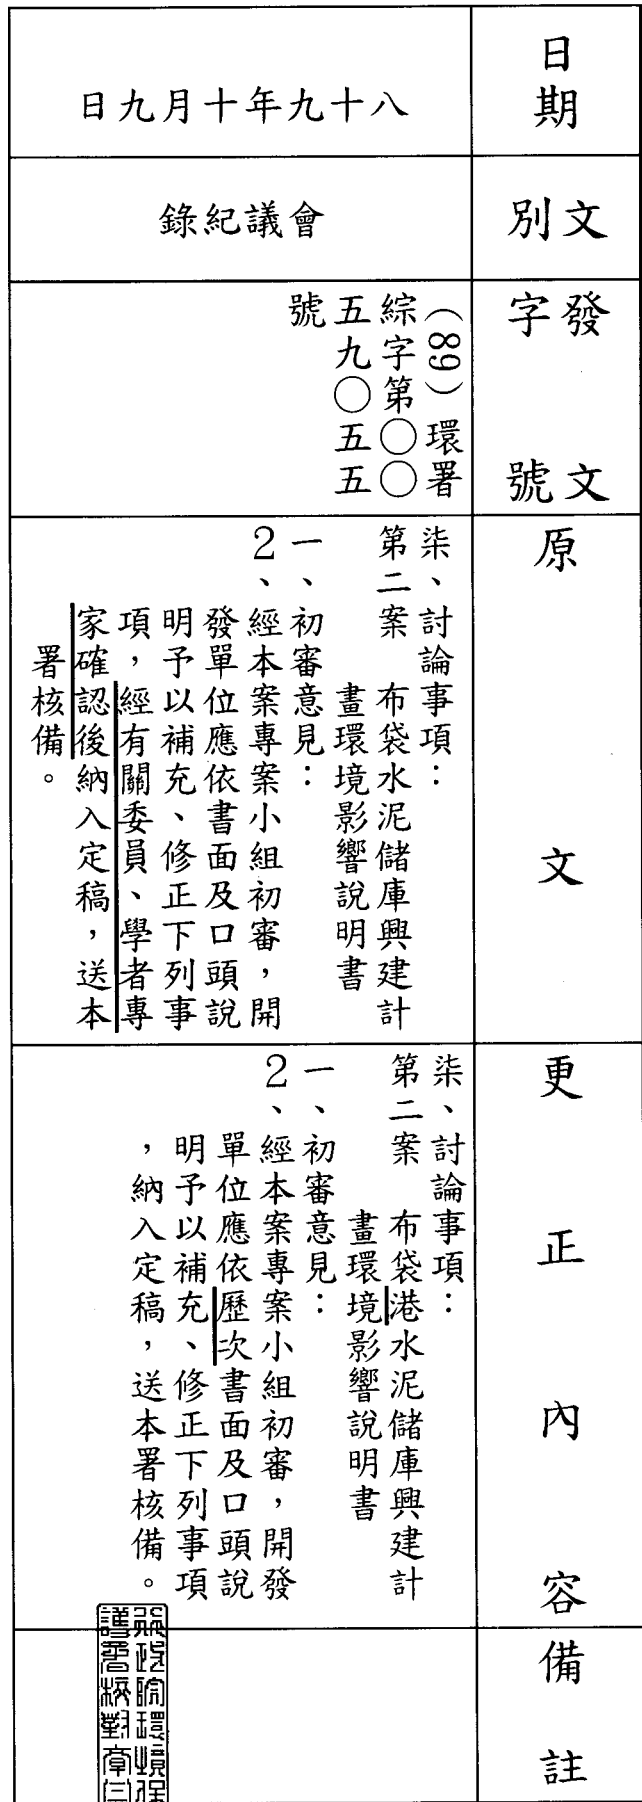 日期
八十九年十月九日
文別
會議紀錄
發文字號
（89）環署
綜字第○○
五九○五五
號
原文
柒、討論事項：
第二案　布袋水泥儲庫興建計
畫環境影響說明書
一、初審意見：
2、經本案專案小組初審，開
發單位應依書面及口頭說
明予以補充、修正下列事
項，經有關委員、學者專
家確認後納入定稿，送本
署核備。
更正內容
柒、討論事項：
第二案　布袋港水泥儲庫興建計
畫環境影響說明書
一、初審意見：
2、經本案專案小組初審，開發
單位應依歷次書面及口頭說
明予以補充、修正下列事項
，納入定稿，送本署核備。
備註
行政院環境保
護署校對章